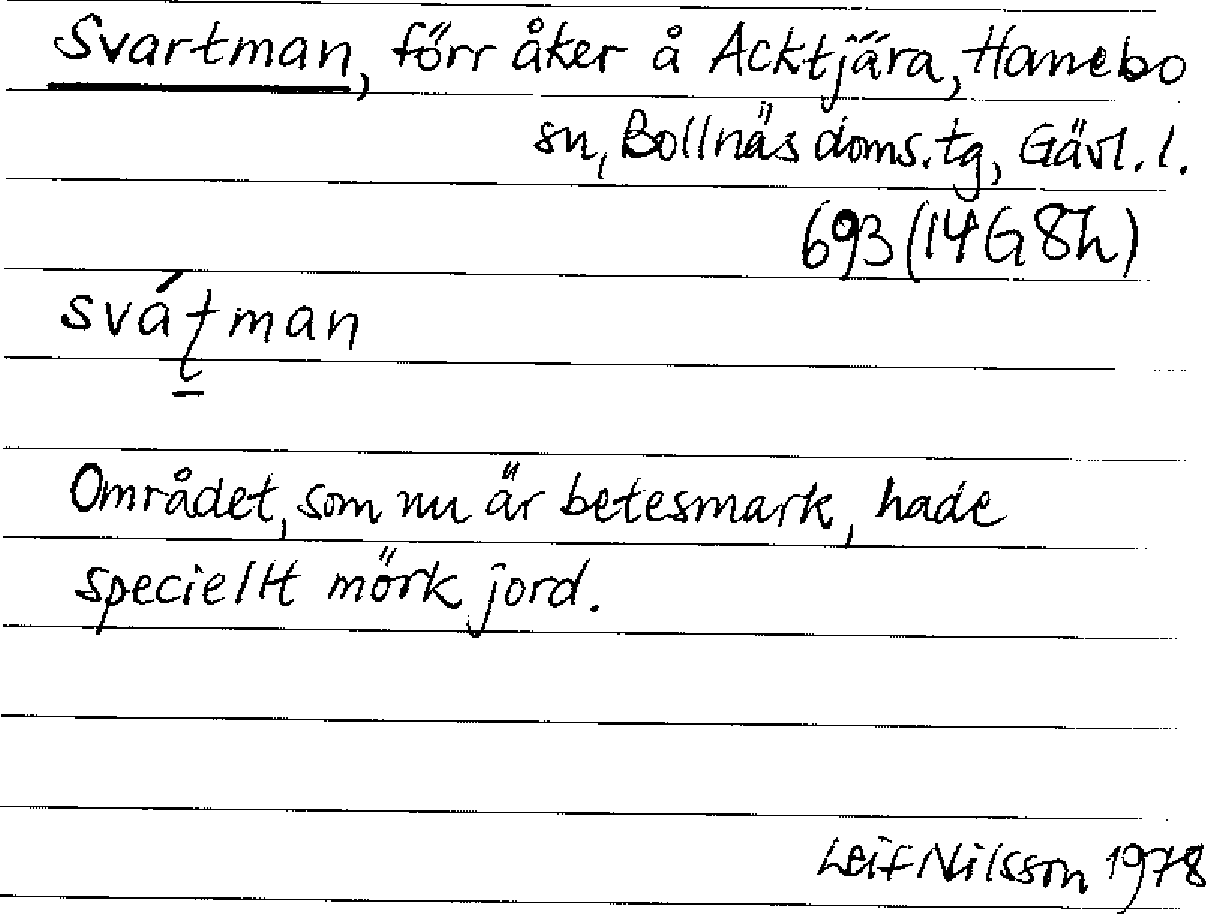 Svartman, förr åker å Acktjära, Hanebo
sn, Bollnäs doms.tg, Gävl. l.
693 (14G 8h)
sváʈman
Området, som nu är betesmark, hade
speciellt mörk jord.
Leif Nilsson 1978